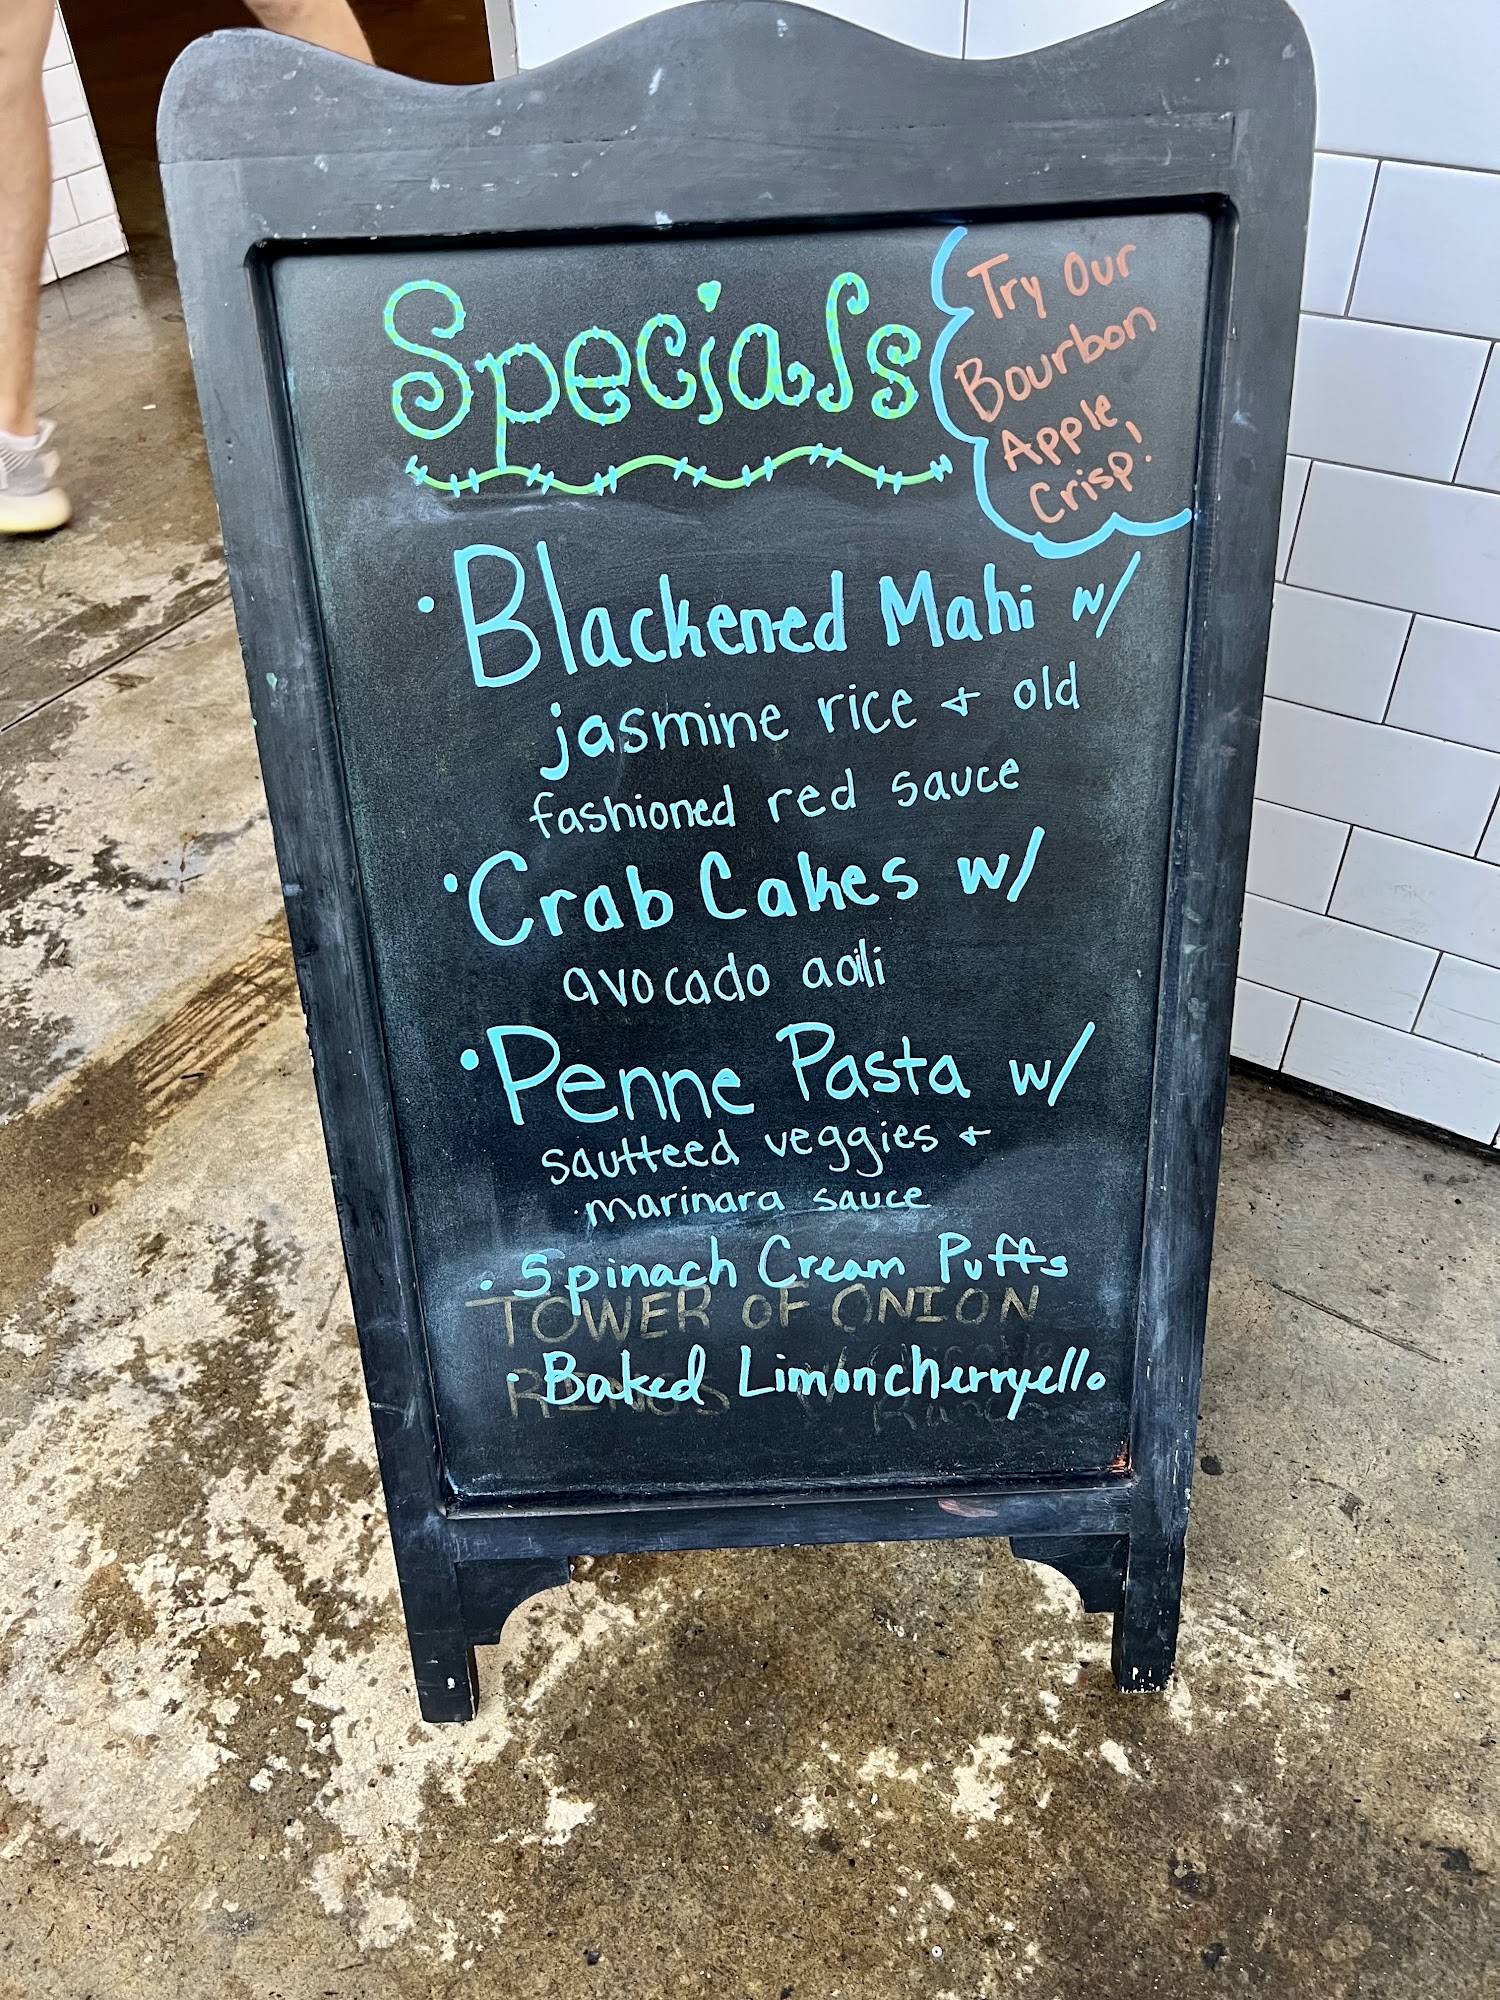 Specials
Try Our
Bourbon
Apple
Crisp!
• Blackened Mahi w/
jasmine rice + old
fashioned red sauce
• Crab Cakes w/
avocado aoili
• Penne Pasta w/
sautteed veggies +
marinara sauce
• Spinach Cream Puffs
TOWER OF ONION
• Baked Limoncherryello
RINGS W/